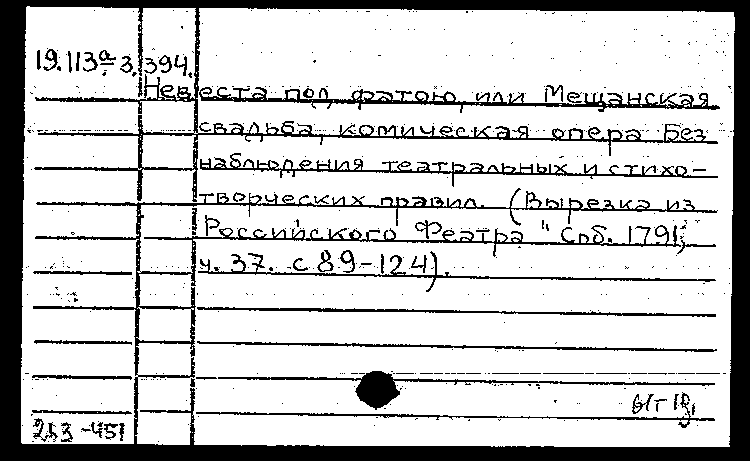 19.113а 3.394.
Невеста под фатою, или Мещанская
свадьба, комическая опера Без
наблюдения театральных и стихо-
творческих правил. (Вырезка из
Российского Феатра" Спб. 1791;
ч. 37. с 89-124).
б/г
263-451